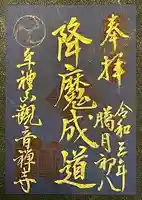 奉拝
令和三年
臘月初八
降魔成道
車禅山観音禅寺